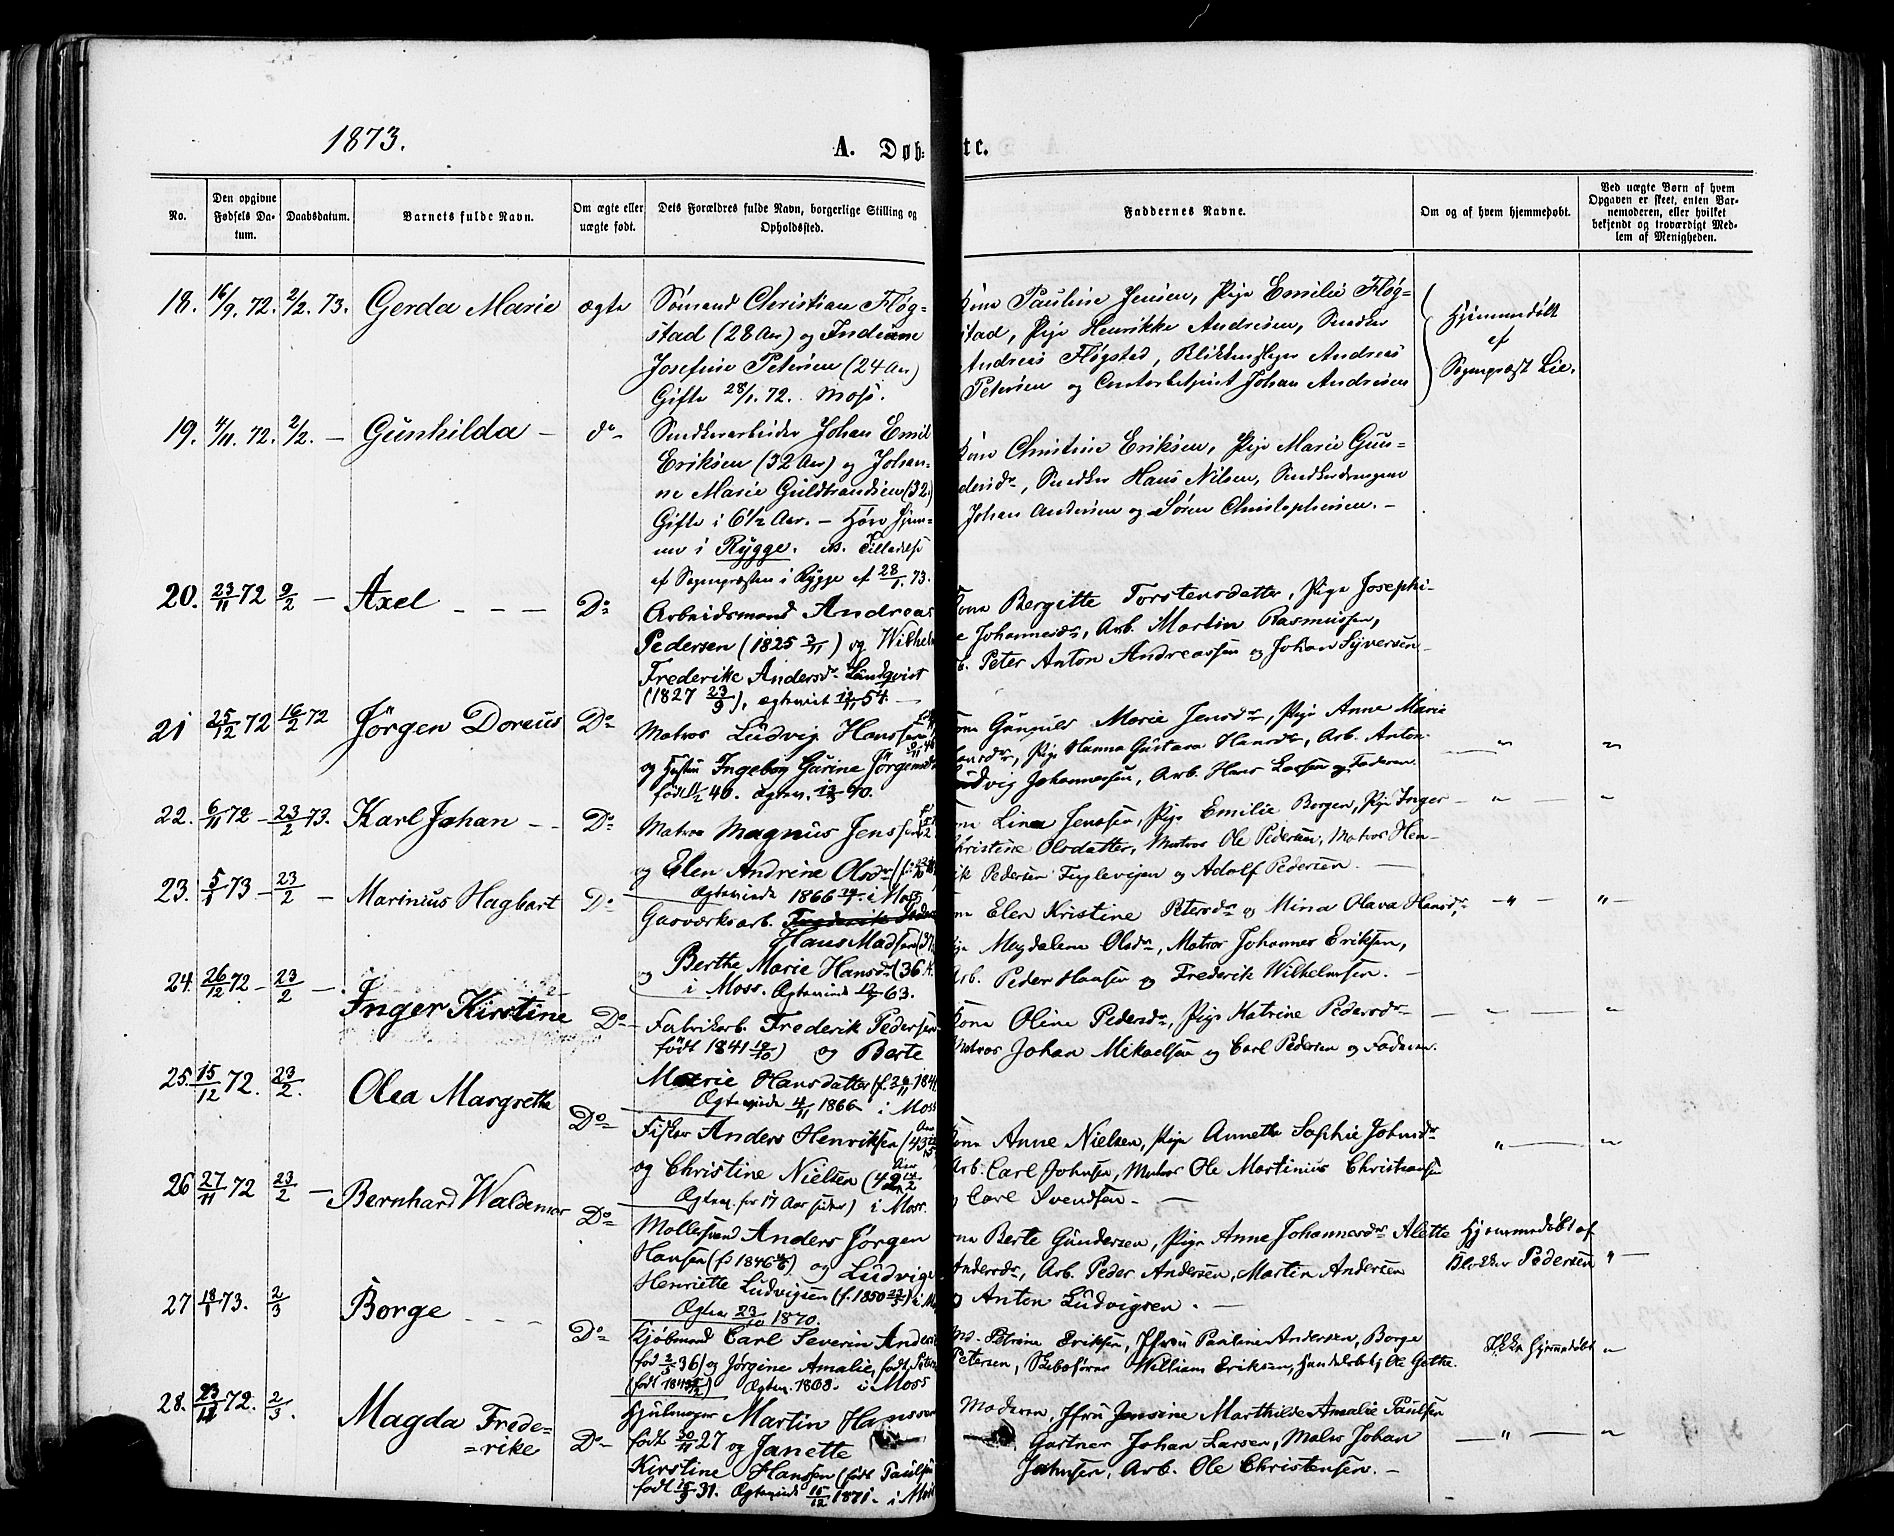 1873.
A. Døb- te.
No.
Den opgivne Fødsels Datum.
Daabsdatum.
Barnets fulde Navn.
Om ægte eller uægte født.
Dets Forældres fulde Navn, borgerlige Stilling og Opholdssted.
Faddernes Navne.
Om og af hvem hjemmedøbt.
Ved uægte Børn af hvem Opgaven er skeet, enten Barnemoderen, eller hvilket bekjendt og troværdigt Medlem af Menigheden.
18. 16/9. 72. 2/2. 73. Gerda Marie ægte
Sømand Christian Fløg-
stad (28 Aar) og Indiane
Josefine Petersen (24 Aar)
Gifte 28/1. 72. Moss.
Kone Pauline Jensen, Pige Emilie Fløg-
stad, Pige Henrikke Andresen, Snedker
Andreas Fløgstad, Blikkenslager Andreas
Petersen og Contorbetjent Johan Andresen
Hjemmedøbt
af
Sognepræst Lie.
19. 4/11. 72. 2/2. — Gunhilda — do
Snedkerarbeider Johan Emil
Eriksen (32 Aar) og Johan-
ne Marie Guldbrandsen (32.)
Gifte i 6 1/2 Aar. — Har Hjem-
me i Rygge. Tilladelse
af Sognepræsten i Rygge af 28/1. 73.
Kone Christine Eriksen, Pige Marie Gun-
dersdr, Snedker Hans Nilsen, Snedkerdrengene
Johan Andersen og Søren Christophersen. —
20. 23/11 72 9/2 — Axel - - - Do
Arbeidsmand Andreas
Pedersen (1825 3/11) og Wilhel
Frederike Andersdr Landqvist
(1827 23/9), ægteviet 12/11 54. —
Kone Bergitte Torstensdatter, Pige Josephi-
e Johannesdr, Arb. Martin Rasmussen,
b. Peter Anton Andreassen og Johan Syversen
21 25/12 72 16/2 72 Jørgen Doreus Do
Matros Ludvig Hanssen
og Hustru Ingeborg Gurine Jørgensd
født 11/2 40. Ægtev. 12/3 70.
Kone Gunnild Marie Jensdr, Pige Anne Marie
Hansdr, Pige Hanna Gustava Hansdr, Arb. Anton
Ludvig Johannessen, Arb. Hans Larsen og Faderen
— " "
22. 6/11 72 — 23/2 73. Karl Johan - - Do
Matros Magnus Jenssen
og Elen Andrine Olsdr
Ægteviede 1866 i Moss
Kone Lina Jenssen, Pige Emilie Borgen, Pige Inger
Christine Olsdatter, Matros Ole Pedersen, Matros Hen-
rik Pedersen Fuglevigen og Adolf Pedersen. —
— " — "
23. 5/1 73 — 23/2 — Marinius Hagbart Do
Gasværksarb.
Hans Madsen (37
og Berthe Marie Hansdr (36 A.
i Moss. Ægteviede 12/7 63.
Kone Elen Kristine Petersdr og Mina Olava Hansdr,
Pige Magdalene Olsdr, Matros Johannes Eriksen,
Arb. Peder Hansen og Frederik Wilhelmsen. —
— " — " —
24. 26/12 72 — 23/2 — Inger Kirstine Do
Fabrikarb. Frederik Pedersen
født 1841 19/10) og Berte
Marie Hansdatter (f. 26/11 1841
Ægteviede 4/11 1866 i Moss
Kone Oline Pedersdr, Pige Katrine Pedersdr
Matros Johan Mikaelsen og Carl Pedersen og Faderen.
— " — "
25. 15/12 72. 23/2. Olea Margrethe Do
Fisker Anders Henriksen (43
og Christine Nielsen (42
Ægtev. for 17 Aar siden) i Moss.
Kone Anne Nielsen, Pige Annethe Sophie Johnsdr
Arb. Carl Johnsen, Matros Ole Martinius Christiansen
og Carl Svendsen. —
" — "
26 27/11 72 23/2 — Bernhard Waldemar Do
Møllesvend Anders Jørgen
Hansen (f. 1846) og Ludvige
Henriette Ludvigsen (f. 1850
Ægtev 23/10 1870.
Kone Berte Gundersen, Pige Anne Johannesdr Alette
Andersdr, Arb. Peder Andersen, Martin Andersen
og Anton Ludvigsen. —
Hjemmedøbt af
Klokker Pedersen " —
27 18/1 73. 2/3 Borge - - - Do
Kjøbmand Carl Severin Anders
(fød 36) og Jørgine Amalie, født
Ægtev. 1868. i Moss
Petrine Eriksen, Jfru Pauline Andersen, Borge
Petersen, Skibsfører William Eriksen, Handelsbetj. Ole Gethe.
Ikke Hjemmedøbt "
28. 23/12 72. 2/3. Magda Frede-
=rike Do
Hjulmager Martin Hanssen
født 30/11 27 og Janette
Kirstine Hanssen (født Paulsen
født 31. Ægteviede 15/12 1871. i Moss
Moderen, Jfru Jensine Marthilde Amalie Paulsen
Gartner Johan Larsen, Maler Johan
Johnsen, Arb. Ole Christensen. —
— " — "